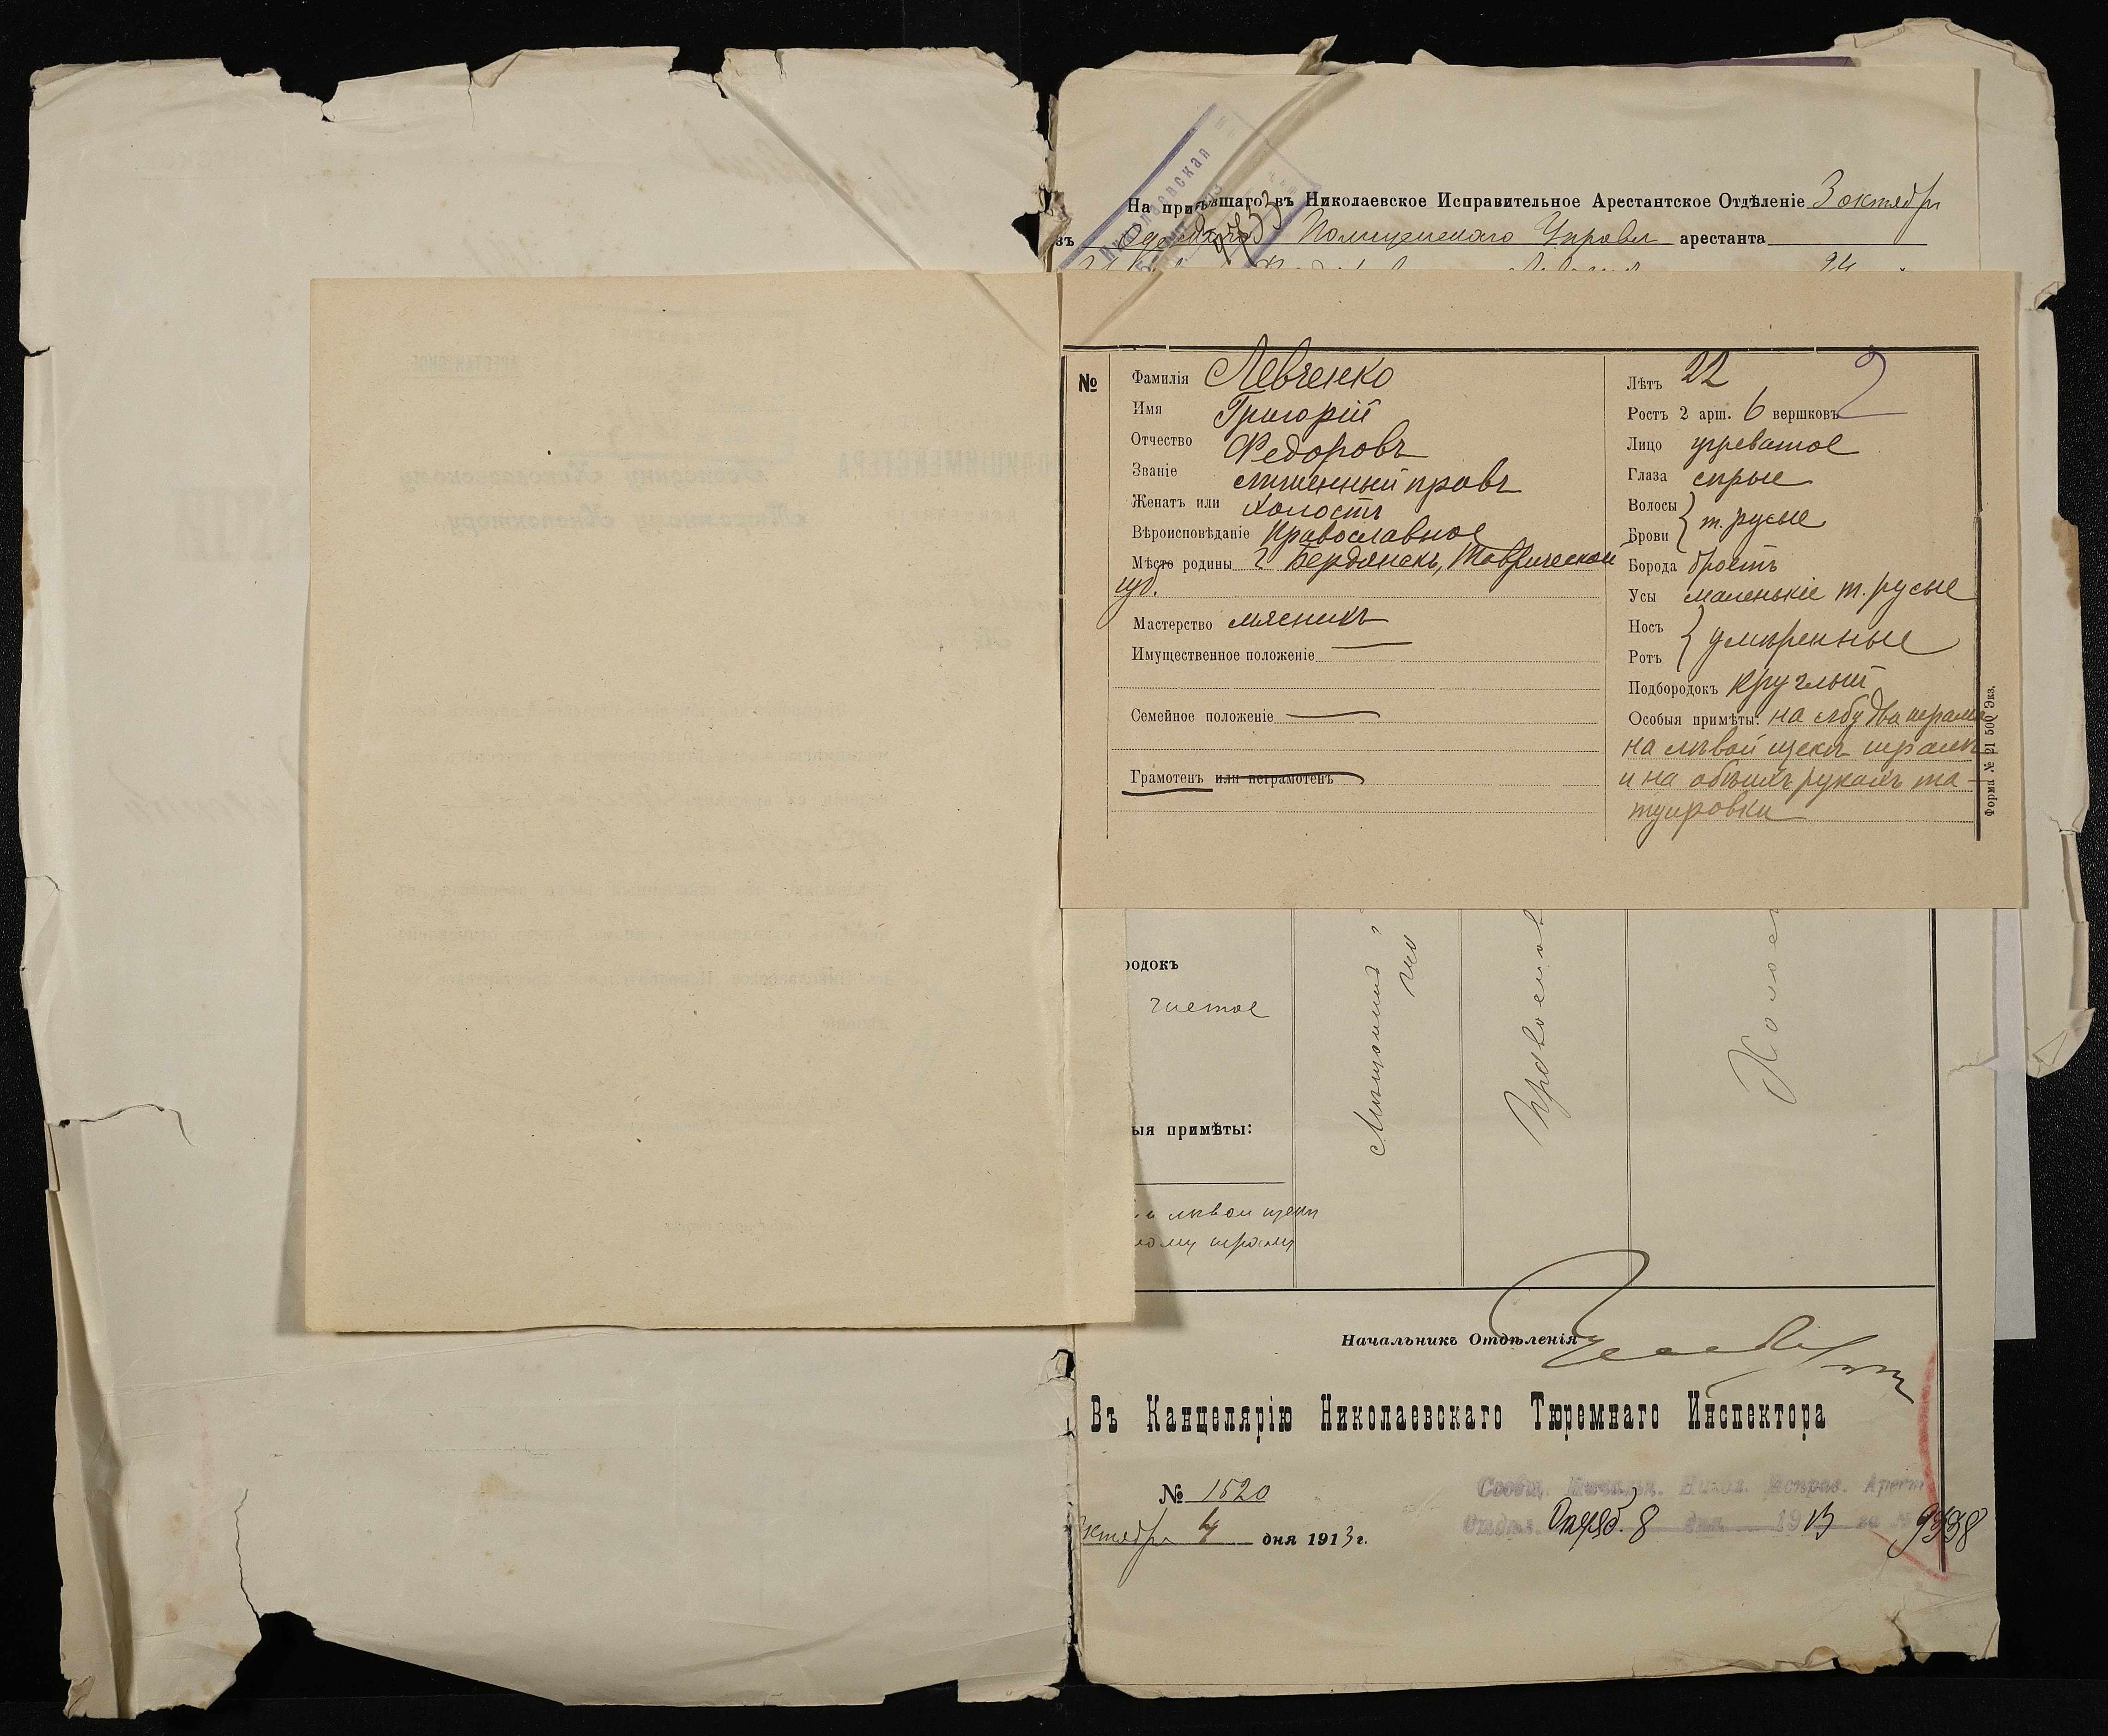 На прибывшаго въ Николаевское Исправительное Арестантское Отдѣленіе 3 октября
Полицейскаго Управл арестанта
№
Фамилія Левченко
Имя Григорій
Отчество Федоровъ
Званіе лишенный правъ
Женатъ или холостъ
Вѣроисповѣданіе Православное
Мѣсто родины г Бердянскъ, Таврической
губ.
Мастерство мясникъ
Имущественное положеніе
Семейное положеніе
Грамотенъ или неграмотенъ
Лѣтъ 22
2
Ростъ 2 арш. 6 вершковъ
Лицо угреватое
Глаза сѣрые
Волосы
Брови т. русые
Борода бреетъ
Усы маленькіе т. русые
Носъ
Ротъ умѣренные
Подбородокъ круглый
Особыя примѣты: на лбу два шрама
на лѣвой щекѣ шрамъ
и на обѣихъ рукахъ та-
туировки
Форма № 21 500 Экз.
родокъ
чистое
ыя примѣты:
лѣвой щекѣ
ному шраму
Православ
Холос
Начальникъ Отдѣленія
Въ Канцелярію Николаевскаго Тюремнаго Инспектора
№ 1520
октября 4 дня 1913 г.
Сообщ. Начальн. Никол. Исправ. Арест
Отдѣл. Октяб. 8 дня 1913 за № 9338